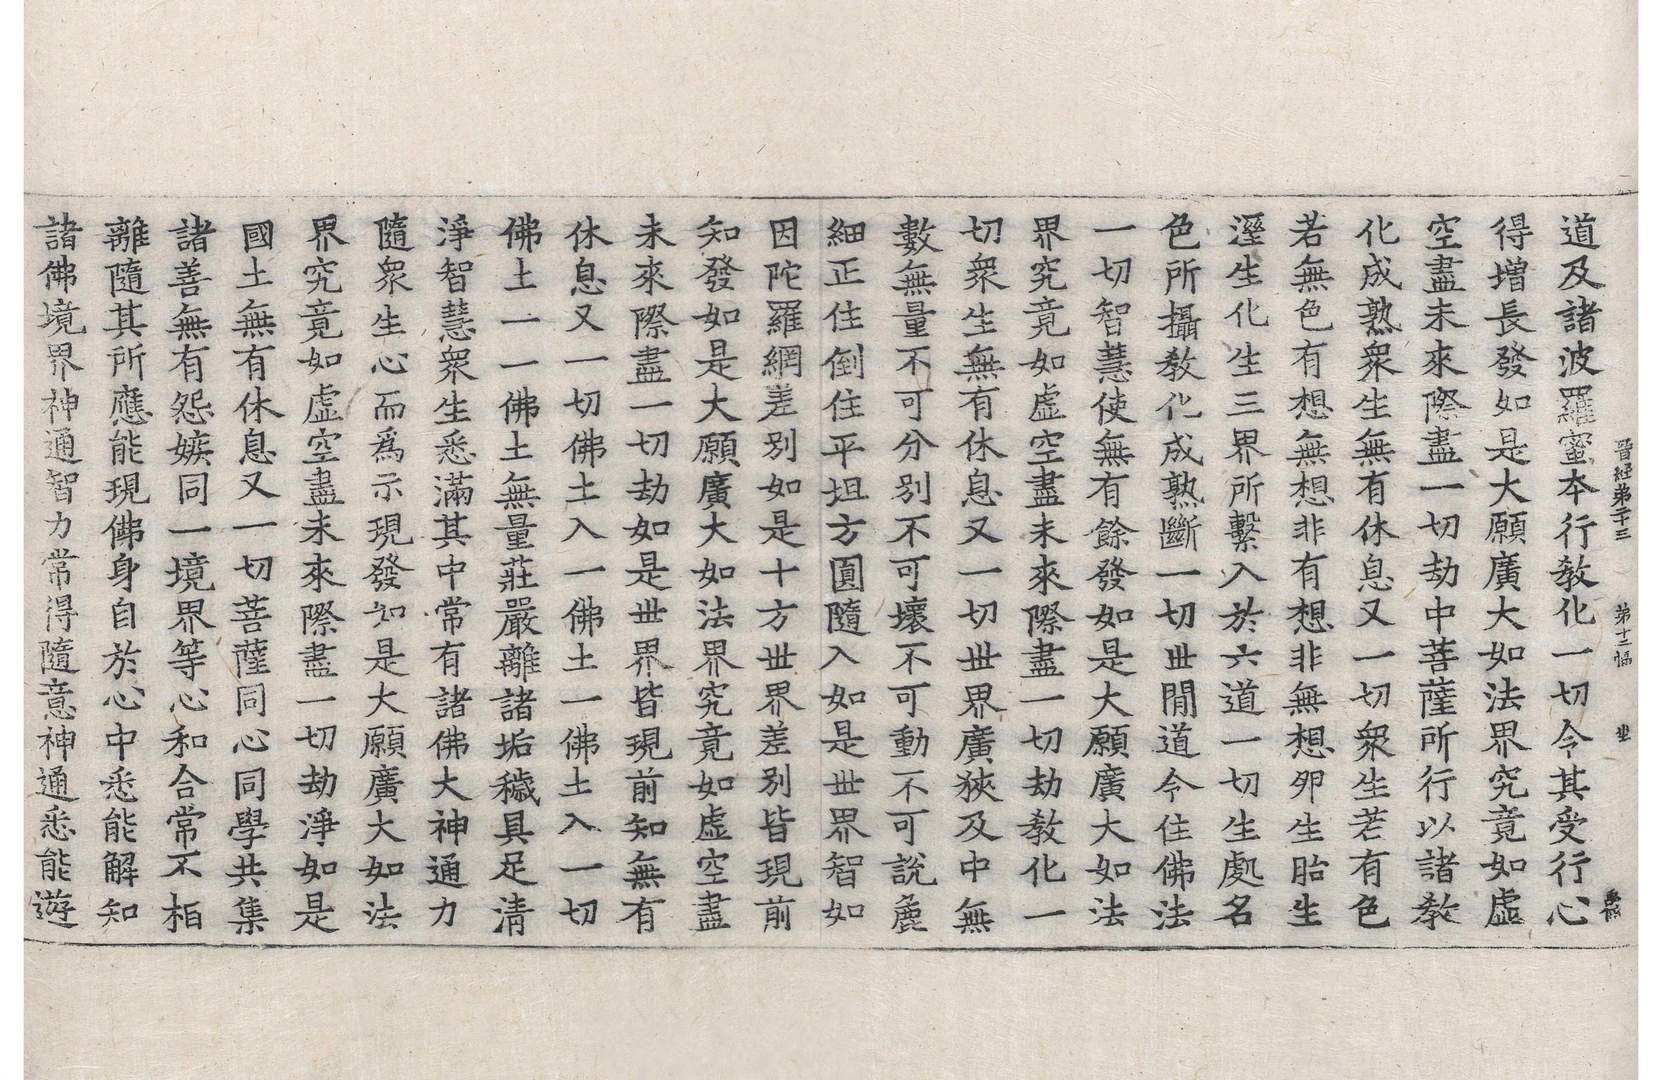 晉經第二十三　第十二幅　坐
道及諸波羅蜜本行教化一切令其受行心
得增長發如是大願廣大如法界究竟如虛
空盡未來際盡一切劫中菩薩所行以諸教
化成熟衆生無有休息又一切衆生若有色
若無色有想無想非有想非無想卵生胎生
溼生化生三界所繫入於六道一切生處名
色所攝教化成熟斷一切世間道令住佛法
一切智慧使無有餘發如是大願廣大如法
界究竟如虛空盡未來際盡一切劫教化一
切衆生無有休息又一切世界廣狹及中無
數無量不可分別不可壞不可動不可說麁
細正住倒住平坦方圓隨入如是世界智如
因陀羅網差別如是十方世界差別皆現前
知發如是大願廣大如法界究竟如虛空盡
未來際盡一切劫如是世界皆現前知無有
休息又一切佛土入一佛土一佛土入一切
佛土一一佛土無量莊嚴離諸垢穢具足清
淨智慧衆生悉滿其中常有諸佛大神通力
隨衆生心而爲示現發如是大願廣大如法
界究竟如虛空盡未來際盡一切劫淨如是
國土無有休息又一切菩薩同心同學共集
諸善無有怨嫉同一境界等心和合常不相
離隨其所應能現佛身自於心中悉能解知
諸佛境界神通智力常得隨意神通悉能遊